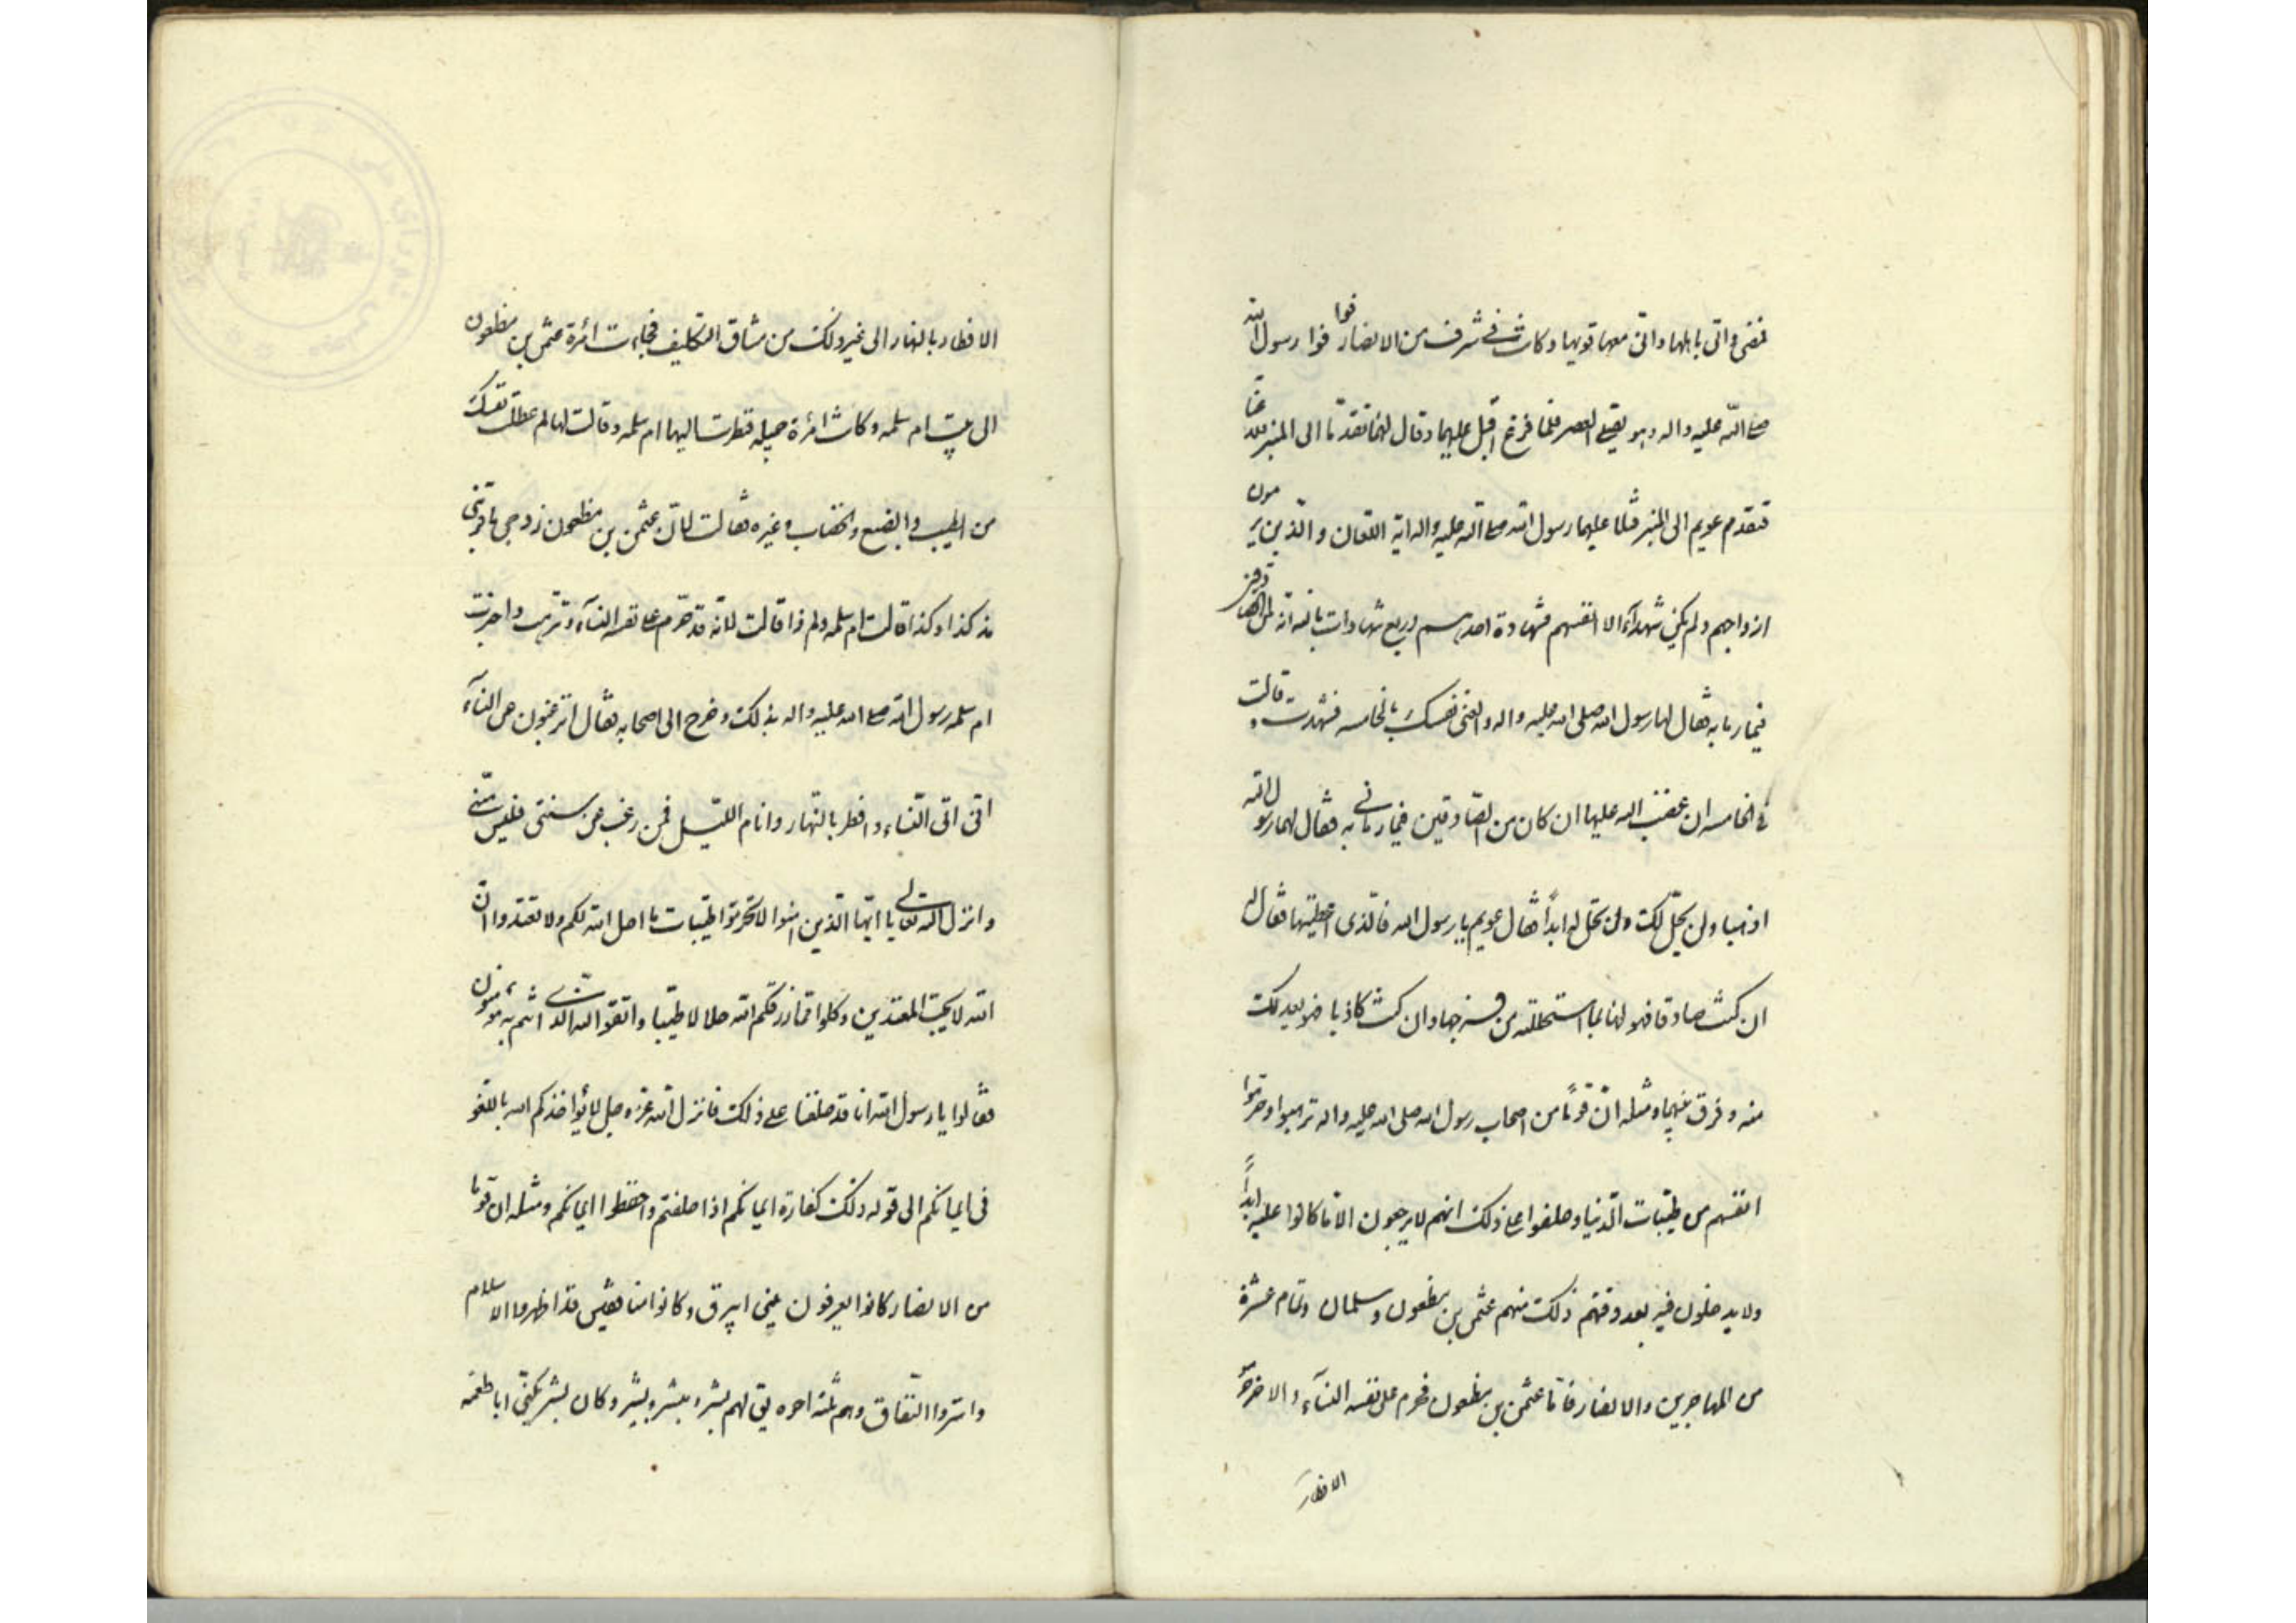 فمضى واتى باهلها واتى معها قومها وكانت فى شرف من الانصار فوافوا رسول الله
صلى الله عليه واله وهو يصلى العصر فلما فرغ اقبل عليهما وقال لهما تقدما الى المنبر فلاعنا
فتقدم عويم الى المنبر فتلا عليهما رسول الله صلى الله عليه واله اية اللعان والذين يرمون
ازواجهم ولم يكن شهدآء الا انفسهم فشهادة احدهم اربع شهادات بالله انه لمن الصادقين
فيما رماها به فقال لها رسول الله صلى الله عليه واله والعنى نفسك بالخامسه فشهدت وقالت
فى الخامسه ان غضب الله عليها ان كان من الصادقين فيما رمانى به فقال لهما رسول الله
اذهبا ولن يحل لك ولن تحل له ابداً فقال عويم يا رسول الله فالذى اعطيتها فقال له
ان كنت صادقا فهو لها بما استحللته من فرجها وان كنت كاذبا فهو ابعد لك
منه وفرق بينهما ومثله ان قوماً من اصحاب رسول الله صلى الله عليه واله ترهبوا وحرموا
انفسهم من طيبات الدنيا وحلفوا على ذلك انهم لا يرجعون الا ما كانوا عليه ابداً
ولا يدخلون فيه بعد وقتهم ذلك منهم عثمن بن مظعون وسلمان وتمام عشرة
من المهاجرين والانصار فاما عثمن بن مظعون فحرم على نفسه النسآء والاخر حرم
الافطار
الافطار بالنهار الى غير ذلك من مشاق التكليف فجاءت امرءة عثمن بن مظعون
الى بيت ام سلمه وكانت امرءة جميله فنظرت اليها ام سلمه وقالت لها لم عطلت نفسك
من الطيب والصبغ والخضاب وغيره فقالت لان عثمن بن مظعون زوجى ما قربنى
مذ كذا وكذا قالت ام سلمه ولم ذا قالت لانه قد حرم على نفسه النسآء وترهب واخبرت
ام سلمه رسول الله صلى الله عليه واله بذلك وخرج الى اصحابه فقال اترغبون عن النسآء
انى اتى النساء وافطر بالنهار وانام الليل فمن رغب عن سنتى فليس منى
وانزل الله تعالى يا ايها الذين امنوا لا تحرموا طيبات ما احل الله لكم ولا تعتدوا ان
الله لا يحب المعتدين وكلوا مما رزقكم الله حلالا طيبا واتقوا الله الذى انتم به مؤمنون
فقالوا يا رسول الله انا قد حلفنا على ذلك فانزل الله عز وجل لا يؤاخذكم الله باللغو
فى ايمانكم الى قوله ذلك كفارة ايمانكم اذا حلفتم واحفظوا ايمانكم ومثله ان قوما
من الانصار كانوا يعرفون ببنى ابيرق وكانوا منافقين قد اظهروا الاسلام
واسروا النفاق وهم ثلثه اخوه يق لهم بشر وبشر وبشير وكان بشر يكنى ابا طعمه